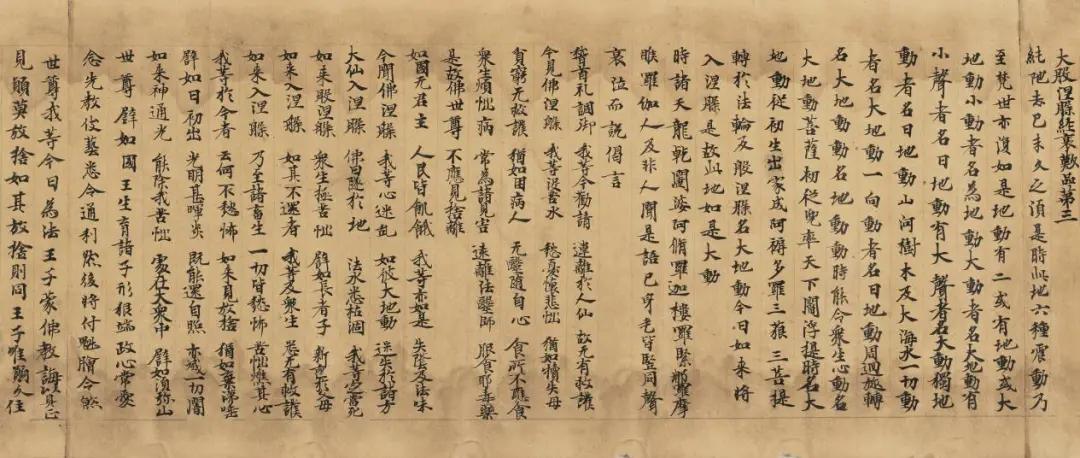 大般涅槃經哀歎品第三
純陀去已未久之頃是時此地六種震動乃
至梵世亦復如是地動有二或有地動或大
地動小動者名為地動大動者名大地動有
小聲者名曰地動有大聲者名大動獨地
動者名曰地動山河樹木及大海水一切動
者名大地動一向動者名曰地動周迴旋轉
名大地動動名地動動時能令衆生心動名
大地動菩薩初從兜率天下閻浮提時名大
地動從初生出家成阿耨多羅三藐三菩提
轉於法輪及般涅槃名大地動今日如來將
入涅槃是故此地如是大動
時諸天龍乾闥婆阿脩羅迦樓羅緊那羅摩
睺羅伽人及非人聞是語已身毛皆竪同聲
哀泣而說偈言
稽首礼調御 我等今勸請 違離於人仙 故无有救護
今見佛涅槃 我等沒苦水 愁憂懷悲惱 猶如犢失母
貧窮无救護 猶如困病人 无醫隨自心 食所不應食
衆生煩惱病 常為諸見害 遠離法醫師 服食耶毒藥
是故佛世尊 不應見捨離
如國无君主 人民皆飢餓 我等亦如是 失蔭及法味
今聞佛涅槃 我等心迷乱 如彼大地動 迷失於諸方
大仙入涅槃 佛日墜於地 法水悉枯涸 我等定當死
如來般涅槃 衆生極苦惱 譬如長者子 新喪於父母
如來入涅槃 如其不還者 我等及衆生 悉无有救護
如來入涅槃 乃至諸畜生 一切皆愁怖 苦惱燋其心
我等於今者 云何不愁怖 如來見放捨 猶如棄涕唾
譬如日初出 光明甚暉炎 既能還自照 亦滅一切闇
如來神通光 能除我苦惱 處在大衆中 譬如須弥山
世尊譬如國王生育諸子形貌端政心常愛
念先教伎藝悉令通利然後將付魁膾令煞
世尊我等今日為法王子蒙佛教誨以具正
見願莫放捨如其放捨則同王子唯願久住